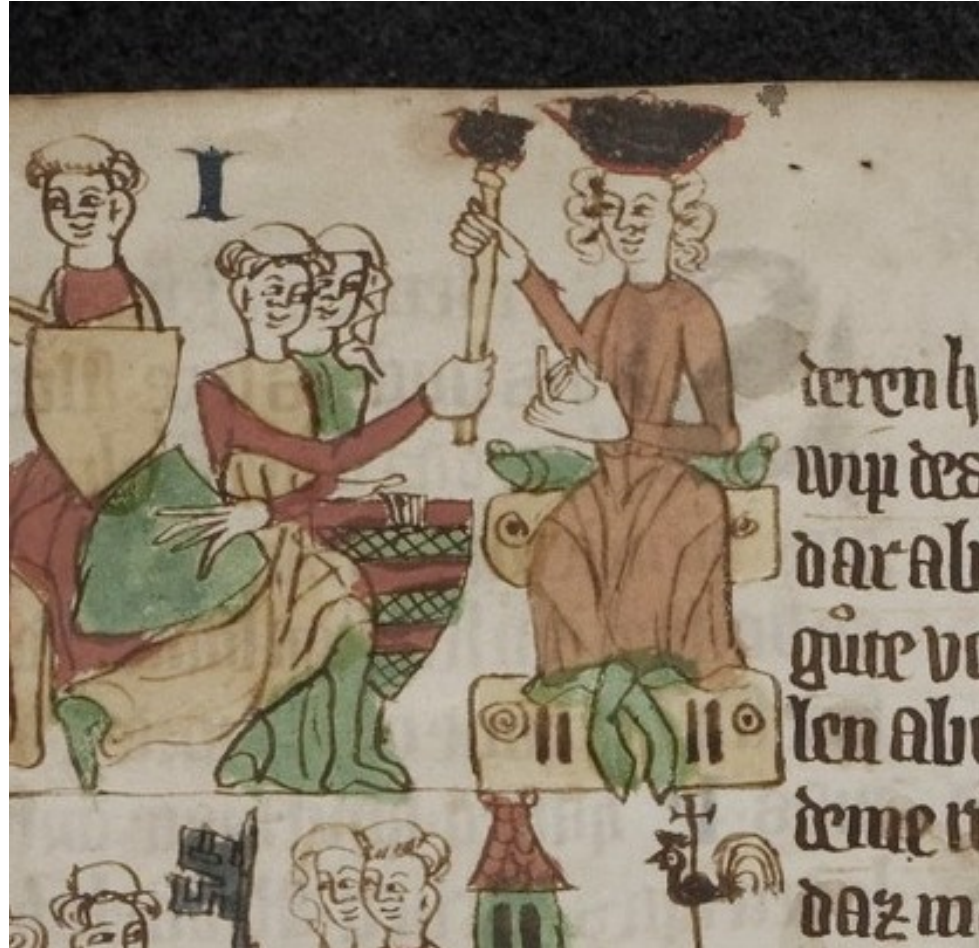 I
deren h
wip des
dar abu
gůte vo
len abu
deme n
daz m